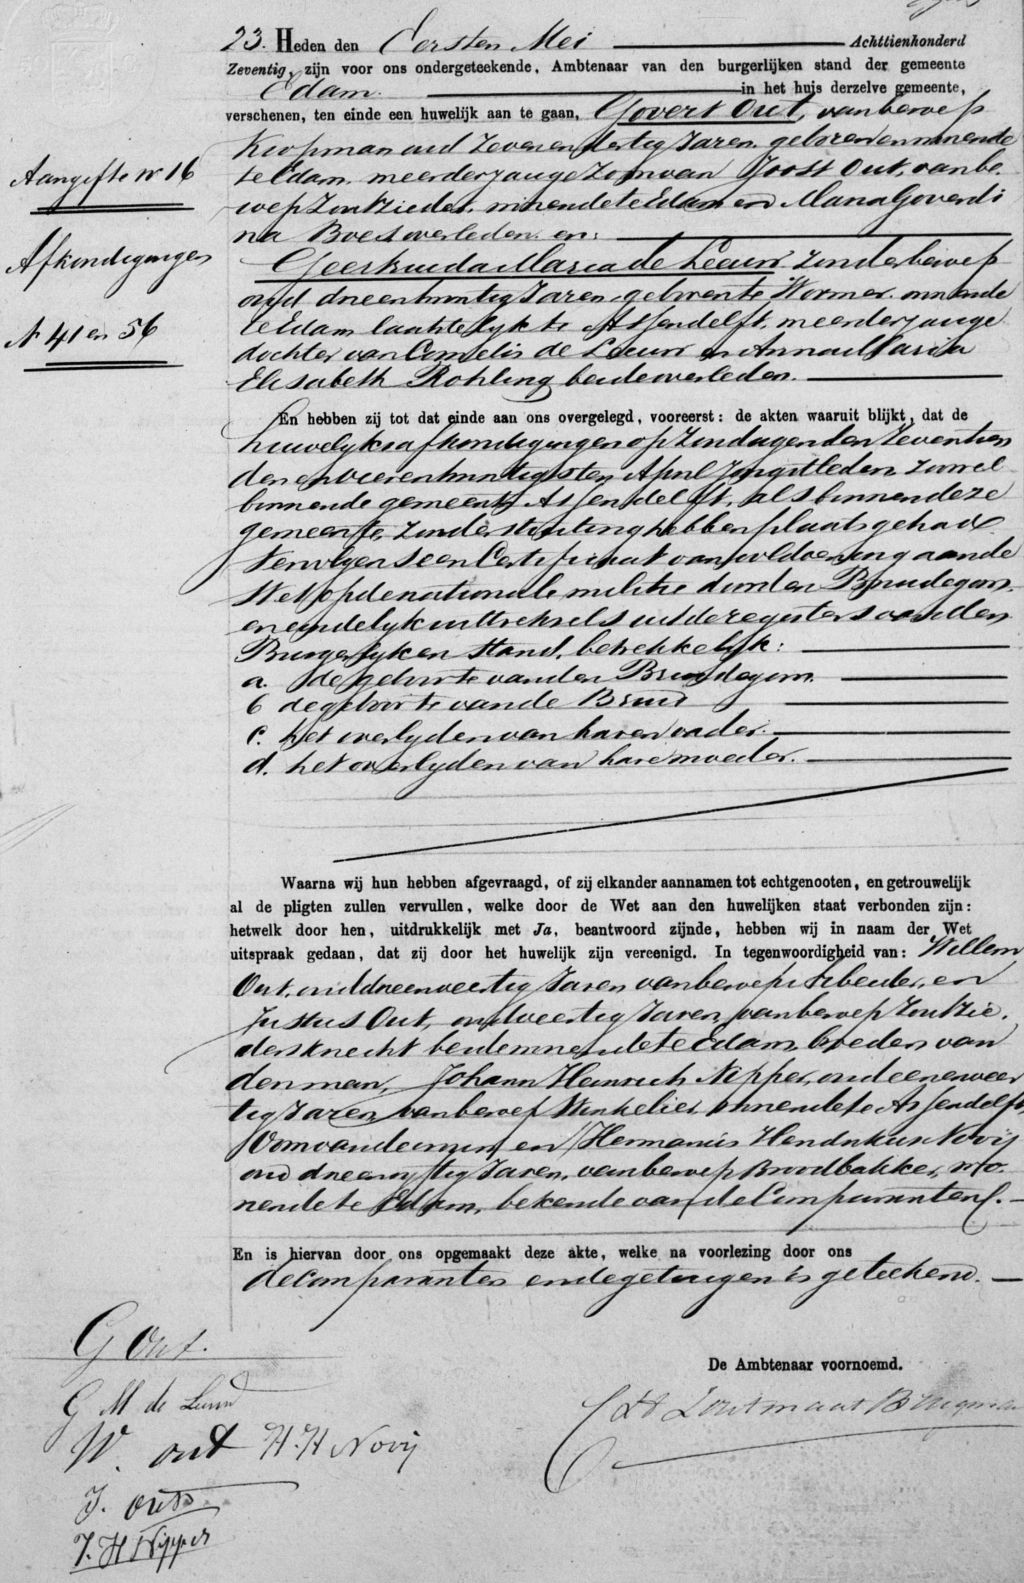 23. Heden den Eersten Mei Achttienhonderd
Zeventig, zijn voor ons ondergeteekende, Ambtenaar van den burgerlijken stand der gemeente
Edam. in het huis derzelve gemeente,
verschenen, ten einde een huwelijk aan te gaan, Govert Out, van beroep
Koopman oud Zeven en dertig Jaren geboren en wonende
te Edam, meerderjarige Zoon van Joost Out, van be-
Aangifte No 16
roep Zoutzieder, wonende te Edam en Maria Goverdi
na Boes overleden. en:
Afkondigingen
Geertruida Maria de Leeuw zonder beroep
oud drie en twintig Jaren, geboren te Wormer, wonende
te Edam laatstelijk te Assendelft, meerderjarige
No 41 en 56
dochter van Cornelis de Leeuw en Anna Maria
Elisabeth Rohling beide overleden.
En hebben zij tot dat einde aan ons overgelegd, vooreerst: de akten waaruit blijkt, dat de
huwelijksafkondigingen op Zondagen den Zeventien
den en vier en twintigsten April Jongstleden zoowel
binnen de gemeente Assendelft, als binnen deze
gemeente, zonder stuiting hebben plaats gehad
Vervolgens een Certificaat van voldoening aan de
Wet op de nationale militie door den Bruidegom
en eindelijk uittreksels uit de registers van den
Burgerlyken Stand, betrekkelijk:
a. de geboorte van den Bruidegom.
b de geboorte van de Bruid
c. het overlyden van haren vader.
d. het overlyden van hare moeder.
Waarna wij hun hebben afgevraagd, of zij elkander aannamen tot echtgenooten, en getrouwelijk
al de pligten zullen vervullen, welke door de Wet aan den huwelijken staat verbonden zijn:
hetwelk door hen, uitdrukkelijk met Ja, beantwoord zijnde, hebben wij in naam der Wet
uitspraak gedaan, dat zij door het huwelijk zijn vereenigd. In tegenwoordigheid van: Willem
Out, oud drie en veertig Jaren van beroep Arbeider, en
Justus Out, oud veertig Jaren, van beroep Zoutzie-
dersknecht beide wonende te Edam, broeders van
den man, Johann Heinrich Nipper, oud een en veer
tig Jaren, van beroep Winkelier, wonende te Assendelft,
Oom van de vrouw, en Hermanus Hendrikus Novij
oud drie en vyftig Jaren, van beroep Broodbakker, wo-
nende te Edam, bekende van de Comparanten.
En is hiervan door ons opgemaakt deze akte, welke na voorlezing door ons
de Comparanten en de getuigen is geteekend.
G Out.
De Ambtenaar voornoemd.
G M de Leeuw
W. out H. H Novij
J. out
J. H Nipper